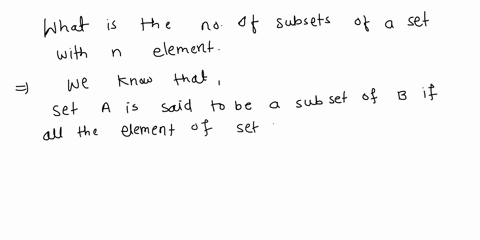 What is the no. of subsets of a set
with n element.
⇒ we know that,
set A is said to be a subset of B if
all the element of set